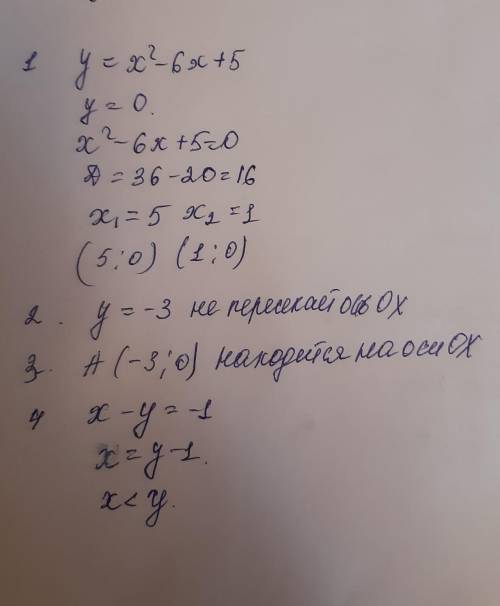 1 y = x² - 6x + 5
y = 0.
x² - 6x + 5 = 0
D = 36 - 20 = 16
x₁ = 5 x₂ = 1
(5; 0) (1; 0)
2. y = -3 не пересекает ось OX
3. A (-3; 0) находится на оси OX
4 x - y = -1
x = y - 1.
x < y.